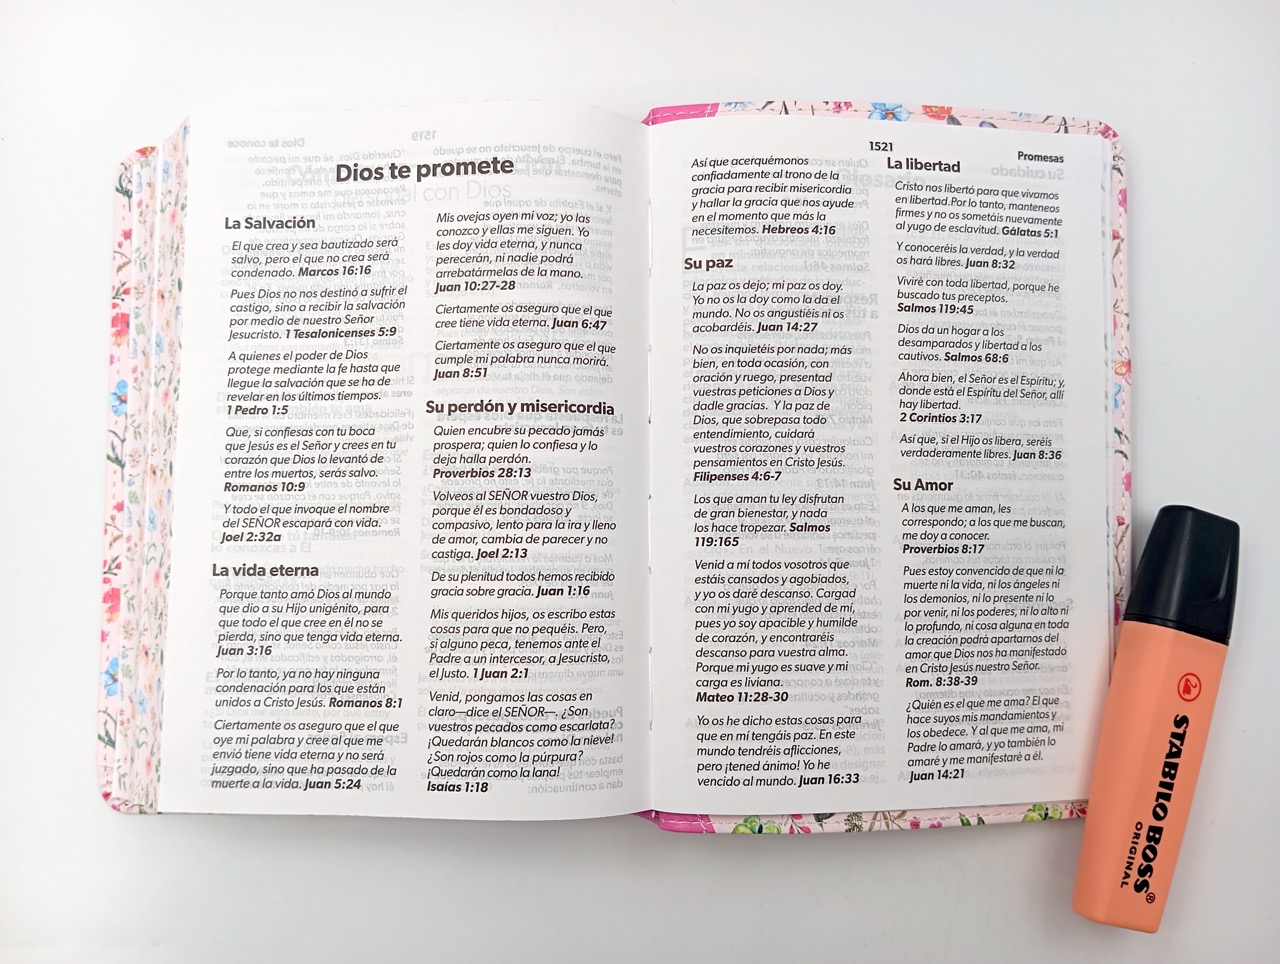 Dios te promete
La Salvación
El que crea y sea bautizado será
salvo, pero el que no crea será
condenado. Marcos 16:16
Pues Dios no nos destinó a sufrir el
castigo, sino a recibir la salvación
por medio de nuestro Señor
Jesucristo. 1 Tesalonicenses 5:9
A quienes el poder de Dios
protege mediante la fe hasta que
llegue la salvación que se ha de
revelar en los últimos tiempos.
1 Pedro 1:5
Que, si confiesas con tu boca
que Jesús es el Señor y crees en tu
corazón que Dios lo levantó de
entre los muertos, serás salvo.
Romanos 10:9
Y todo el que invoque el nombre
del SEÑOR escapará con vida.
Joel 2:32a
La vida eterna
Porque tanto amó Dios al mundo
que dio a su Hijo unigénito, para
que todo el que cree en él no se
pierda, sino que tenga vida eterna.
Juan 3:16
Por lo tanto, ya no hay ninguna
condenación para los que están
unidos a Cristo Jesús. Romanos 8:1
Ciertamente os aseguro que el que
oye mi palabra y cree al que me
envió tiene vida eterna y no será
juzgado, sino que ha pasado de la
muerte a la vida. Juan 5:24
Mis ovejas oyen mi voz; yo las
conozco y ellas me siguen. Yo
les doy vida eterna, y nunca
perecerán, ni nadie podrá
arrebatármelas de la mano.
Juan 10:27-28
Ciertamente os aseguro que el que
cree tiene vida eterna. Juan 6:47
Ciertamente os aseguro que el que
cumple mi palabra nunca morirá.
Juan 8:51
Su perdón y misericordia
Quien encubre su pecado jamás
prospera; quien lo confiesa y lo
deja halla perdón.
Proverbios 28:13
Volveos al SEÑOR vuestro Dios,
porque él es bondadoso y
compasivo, lento para la ira y lleno
de amor, cambia de parecer y no
castiga. Joel 2:13
De su plenitud todos hemos recibido
gracia sobre gracia. Juan 1:16
Mis queridos hijos, os escribo estas
cosas para que no pequéis. Pero,
si alguno peca, tenemos ante el
Padre a un intercesor, a Jesucristo,
el Justo. 1 Juan 2:1
Venid, pongamos las cosas en
claro—dice el SEÑOR—. ¿Son
vuestros pecados como escarlata?
¡Quedarán blancos como la nieve!
¿Son rojos como la púrpura?
¡Quedarán como la lana!
Isaías 1:18
1521
Promesas
Así que acerquémonos
confiadamente al trono de la
gracia para recibir misericordia
y hallar la gracia que nos ayude
en el momento que más la
necesitemos. Hebreos 4:16
Su paz
La paz os dejo; mi paz os doy.
Yo no os la doy como la da el
mundo. No os angustiéis ni os
acobardéis. Juan 14:27
No os inquietéis por nada; más
bien, en toda ocasión, con
oración y ruego, presentad
vuestras peticiones a Dios y
dadle gracias. Y la paz de
Dios, que sobrepasa todo
entendimiento, cuidará
vuestros corazones y vuestros
pensamientos en Cristo Jesús.
Filipenses 4:6-7
Los que aman tu ley disfrutan
de gran bienestar, y nada
los hace tropezar. Salmos
119:165
Venid a mí todos vosotros que
estáis cansados y agobiados,
y yo os daré descanso. Cargad
con mi yugo y aprended de mí,
pues yo soy apacible y humilde
de corazón, y encontraréis
descanso para vuestra alma.
Porque mi yugo es suave y mi
carga es liviana.
Mateo 11:28-30
Yo os he dicho estas cosas para
que en mí tengáis paz. En este
mundo tendréis aflicciones,
pero ¡tened ánimo! Yo he
vencido al mundo. Juan 16:33
La libertad
Cristo nos libertó para que vivamos
en libertad.Por lo tanto, manteneos
firmes y no os sometáis nuevamente
al yugo de esclavitud. Gálatas 5:1
Y conoceréis la verdad, y la verdad
os hará libres. Juan 8:32
Viviré con toda libertad, porque he
buscado tus preceptos.
Salmos 119:45
Dios da un hogar a los
desamparados y libertad a los
cautivos. Salmos 68:6
Ahora bien, el Señor es el Espíritu; y,
donde está el Espíritu del Señor, allí
hay libertad.
2 Corintios 3:17
Así que, si el Hijo os libera, seréis
verdaderamente libres. Juan 8:36
Su Amor
A los que me aman, les
correspondo; a los que me buscan,
me doy a conocer.
Proverbios 8:17
Pues estoy convencido de que ni la
muerte ni la vida, ni los ángeles ni
los demonios, ni lo presente ni lo
por venir, ni los poderes, ni lo alto ni
lo profundo, ni cosa alguna en toda
la creación podrá apartarnos del
amor que Dios nos ha manifestado
en Cristo Jesús nuestro Señor.
Rom. 8:38-39
¿Quién es el que me ama? El que
hace suyos mis mandamientos y
los obedece. Y al que me ama, mi
Padre lo amará, y yo también lo
amaré y me manifestaré a él.
Juan 14:21
STABILO BOSS®
ORIGINAL